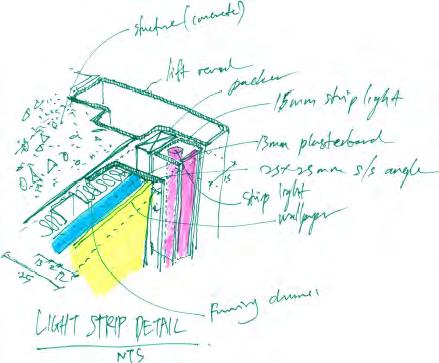 structure (concrete)
lift reveal
packer
15mm strip light
13mm plasterboard
25x25mm s/s angle
strip light
wallpaper
furring channel
LIGHT STRIP DETAIL
NTS